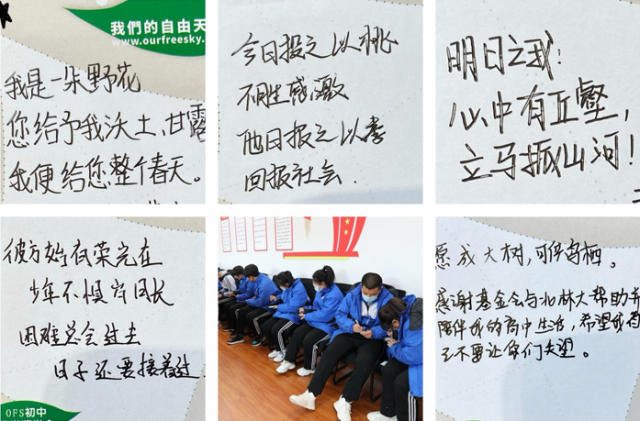 我們的自由天
www.ourfreesky.
我是一朵野花
您给予我沃土、甘露
我便给您整个春天。
今日投之以桃
不胜感激
他日报之以李
回报社会.
明日之我:
心中有丘壑,
立马振山河!
彼方始有荣光在
少年不惧岁月长
困难总会过去
日子还要接着过
OFS初中
愿成大树,可供鸟栖。
感谢基金会与北林大帮助并
陪伴我的高中生活,希望我自
己不要让你们失望。